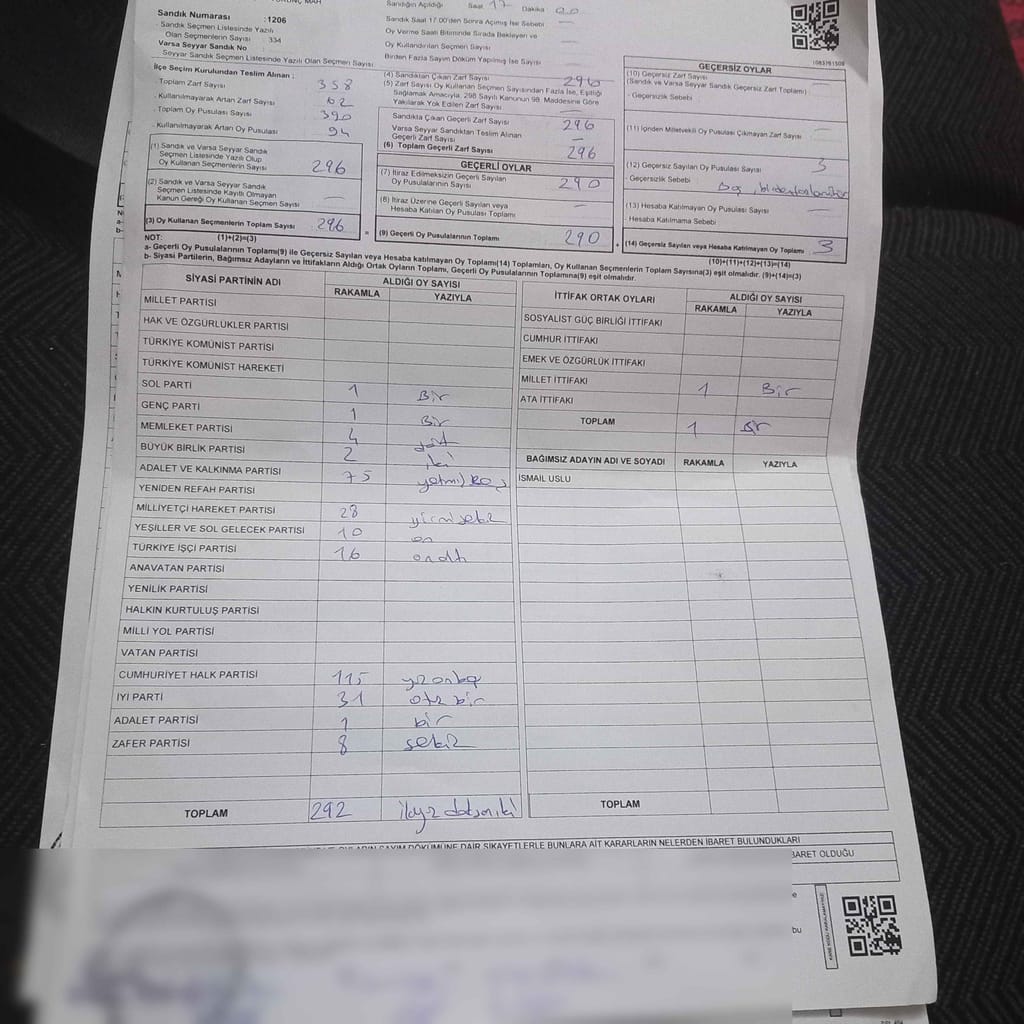 Sandığın Açıldığı Saat 17 Dakika 00
Sandık Numarası : 1206
Sandık Seçmen Listesinde Yazılı
Olan Seçmenlerin Sayısı : 334
Varsa Seyyar Sandık No
Seyyar Sandık Seçmen Listesinde Yazılı Olan Seçmen Sayısı
Sandık Saat 17:00'den Sonra Açımış İse Sebebi —
Oy Verme Saati Bitiminde Sırada Bekleyen ve
Oy Kullandırılan Seçmen Sayısı —
Birden Fazla Sayım Döküm Yapılmış İse Sayısı —
1083761509
İlçe Seçim Kurulundan Teslim Alınan :
Toplam Zarf Sayısı 358
Kullanılmayarak Artan Zarf Sayısı 62
Toplam Oy Pusulası Sayısı 390
Kullanılmayarak Artan Oy Pusulası 94
(1) Sandık ve Varsa Seyyar Sandık
Seçmen Listesinde Yazılı Olup
Oy Kullanan Seçmenlerin Sayısı 296
(2) Sandık ve Varsa Seyyar Sandık
Seçmen Listesinde Kayıtlı Olmayan
Kanun Gereği Oy Kullanan Seçmen Sayısı —
(3) Oy Kullanan Seçmenlerin Toplam Sayısı 296
(1)+(2)=(3)
(4) Sandıktan Çıkan Zarf Sayısı 296
(5) Zarf Sayısı Oy Kullanan Seçmen Sayısından Fazla İse, Eşitliği
Sağlamak Amacıyla, 298 Sayılı Kanunun 98. Maddesine Göre
Yakılarak Yok Edilen Zarf Sayısı —
Sandıkta Çıkan Geçerli Zarf Sayısı 296
Varsa Seyyar Sandıktan Teslim Alınan
Geçerli Zarf Sayısı —
(6) Toplam Geçerli Zarf Sayısı 296
GEÇERLİ OYLAR
(7) İtiraz Edilmeksizin Geçerli Sayılan
Oy Pusulalarının Sayısı 290
(8) İtiraz Üzerine Geçerli Sayılan veya
Hesaba Katılan Oy Pusulası Toplamı —
(9) Geçerli Oy Pusulalarının Toplamı 290
GEÇERSİZ OYLAR
(10) Geçersiz Zarf Sayısı
(Sandık ve Varsa Seyyar Sandık Geçersiz Zarf Toplamı) —
Geçersizlik Sebebi
(11) İçinden Milletvekili Oy Pusulası Çıkmayan Zarf Sayısı —
(12) Geçersiz Sayılan Oy Pusulası Sayısı 3
Geçersizlik Sebebi Boş,
(13) Hesaba Katılmayan Oy Pusulası Sayısı —
Hesaba Katılmama Sebebi
(14) Geçersiz Sayılan veya Hesaba Katılmayan Oy Toplamı 3
(10)+(11)+(12)+(13)=(14)
NOT:
a- Geçerli Oy Pusulalarının Toplamı(9) ile Geçersiz Sayılan veya Hesaba katılmayan Oy Toplamı(14) Toplamları, Oy Kullanan Seçmenlerin Toplam Sayısına(3) eşit olmalıdır. (9)+(14)=(3)
b- Siyasi Partilerin, Bağımsız Adayların ve İttifakların Aldığı Ortak Oyların Toplamı, Geçerli Oy Pusulalarının Toplamına(9) eşit olmalıdır.
SİYASİ PARTİNİN ADI ALDIĞI OY SAYISI
RAKAMLA YAZIYLA
MİLLET PARTİSİ
HAK VE ÖZGÜRLÜKLER PARTİSİ
TÜRKİYE KOMÜNİST PARTİSİ
TÜRKİYE KOMÜNİST HAREKETİ
SOL PARTİ 1 Bir
GENÇ PARTİ 1 Bir
MEMLEKET PARTİSİ 4 dört
BÜYÜK BİRLİK PARTİSİ 2 iki
ADALET VE KALKINMA PARTİSİ 75 yetmiş beş
YENİDEN REFAH PARTİSİ
MİLLİYETÇİ HAREKET PARTİSİ 28 yirmi sekiz
YEŞİLLER VE SOL GELECEK PARTİSİ 10 on
TÜRKİYE İŞÇİ PARTİSİ 16 on altı
ANAVATAN PARTİSİ
YENİLİK PARTİSİ
HALKIN KURTULUŞ PARTİSİ
MİLLİ YOL PARTİSİ
VATAN PARTİSİ
CUMHURİYET HALK PARTİSİ 115 yüz onbeş
İYİ PARTİ 31 otuz bir
ADALET PARTİSİ 1 bir
ZAFER PARTİSİ 8 sekiz
TOPLAM 292 ikiyüz doksan iki
İTTİFAK ORTAK OYLARI ALDIĞI OY SAYISI
RAKAMLA YAZIYLA
SOSYALİST GÜÇ BİRLİĞİ İTTİFAKI
CUMHUR İTTİFAKI
EMEK VE ÖZGÜRLÜK İTTİFAKI
MİLLET İTTİFAKI 1 Bir
ATA İTTİFAKI
TOPLAM 1 Bir
BAĞIMSIZ ADAYIN ADI VE SOYADI RAKAMLA YAZIYLA
İSMAIL USLU
TOPLAM
SAYIM DÖKÜMÜNE DAİR ŞİKAYETLERLE BUNLARA AİT KARARLARIN NELERDEN İBARET BULUNDUKLARI
BARET OLDUĞU